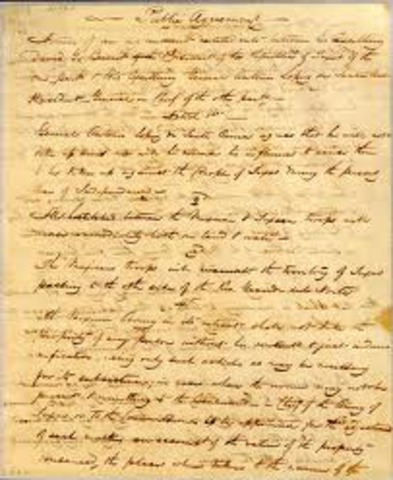 Public Agreement
Articles of an agreement entered into between his Excellency
David G. Burnet President of the Republic of Texas of the
one part & His Excellency General Antonio Lopez de Santa Anna
President General in Chief of the other part
Article 1st
General Antonio Lopez de Santa Anna agrees that he will not
take up arms nor will he his influence to cause them
to be taken up against the People of Texas during the present
War of Independence
2
All hostilities between the Mexican & Texian troops will
cease immediately both on land & water
3
The Mexican troops will evacuate the territory of Texas
passing to the other side of the Rio Grande del Norte
4
The Mexican Army in its retreat shall not take the
property of any person without his consent & just indem
nification, using only such articles as may be necessary
for its subsistence, in cases where the owner may not be
present & remitting to the Commander in Chief of the Army of
Texas or to the Commissioners to be appointed for the adjustment
of such matters an account of the value of the property
consumed, the place where taken, & the name of the